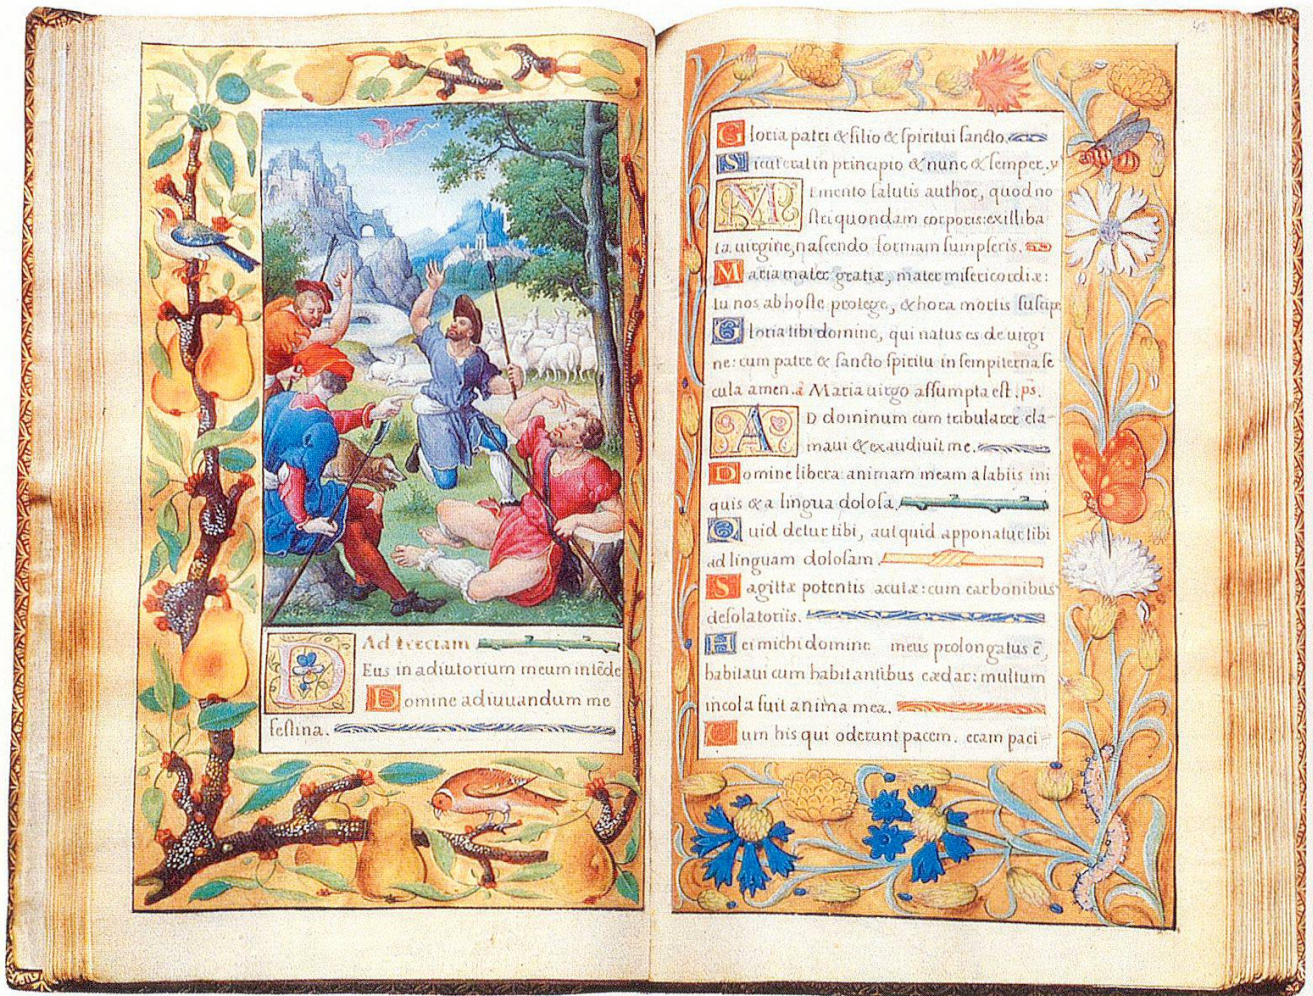 Ad terciam
DEus in adiutorium meum intēde
Domine adiuuandum me
festina.
Gloria patri & filio & spiritui sancto.
Sicut erat in principio & nunc & semper. v
MEmento salutis author, quod no
stri quondam corporis: ex illiba
ta uirgine, nascendo formam sumpseris.
Maria mater gratiæ, mater misericordiæ:
tu nos ab hoste protege, & hora mortis suscipe
Gloria tibi domine, qui natus es de uirgi
ne: cum patre & sancto spiritu in sempiterna se
cula amen. a Maria uirgo assumpta est. ps.
AD dominum cum tribularer cla-
maui & exaudiuit me.
Domine libera animam meam a labiis ini
quis & a lingua dolosa.
Quid detur tibi, aut quid apponatur tibi
ad linguam dolosam.
Sagittæ potentis acutæ: cum carbonibus
desolatoriis.
Hei michi domine meus prolongatus ē,
habitaui cum habitantibus cædar: multum
incola fuit anima mea.
Cum his qui oderunt pacem. eram paci-